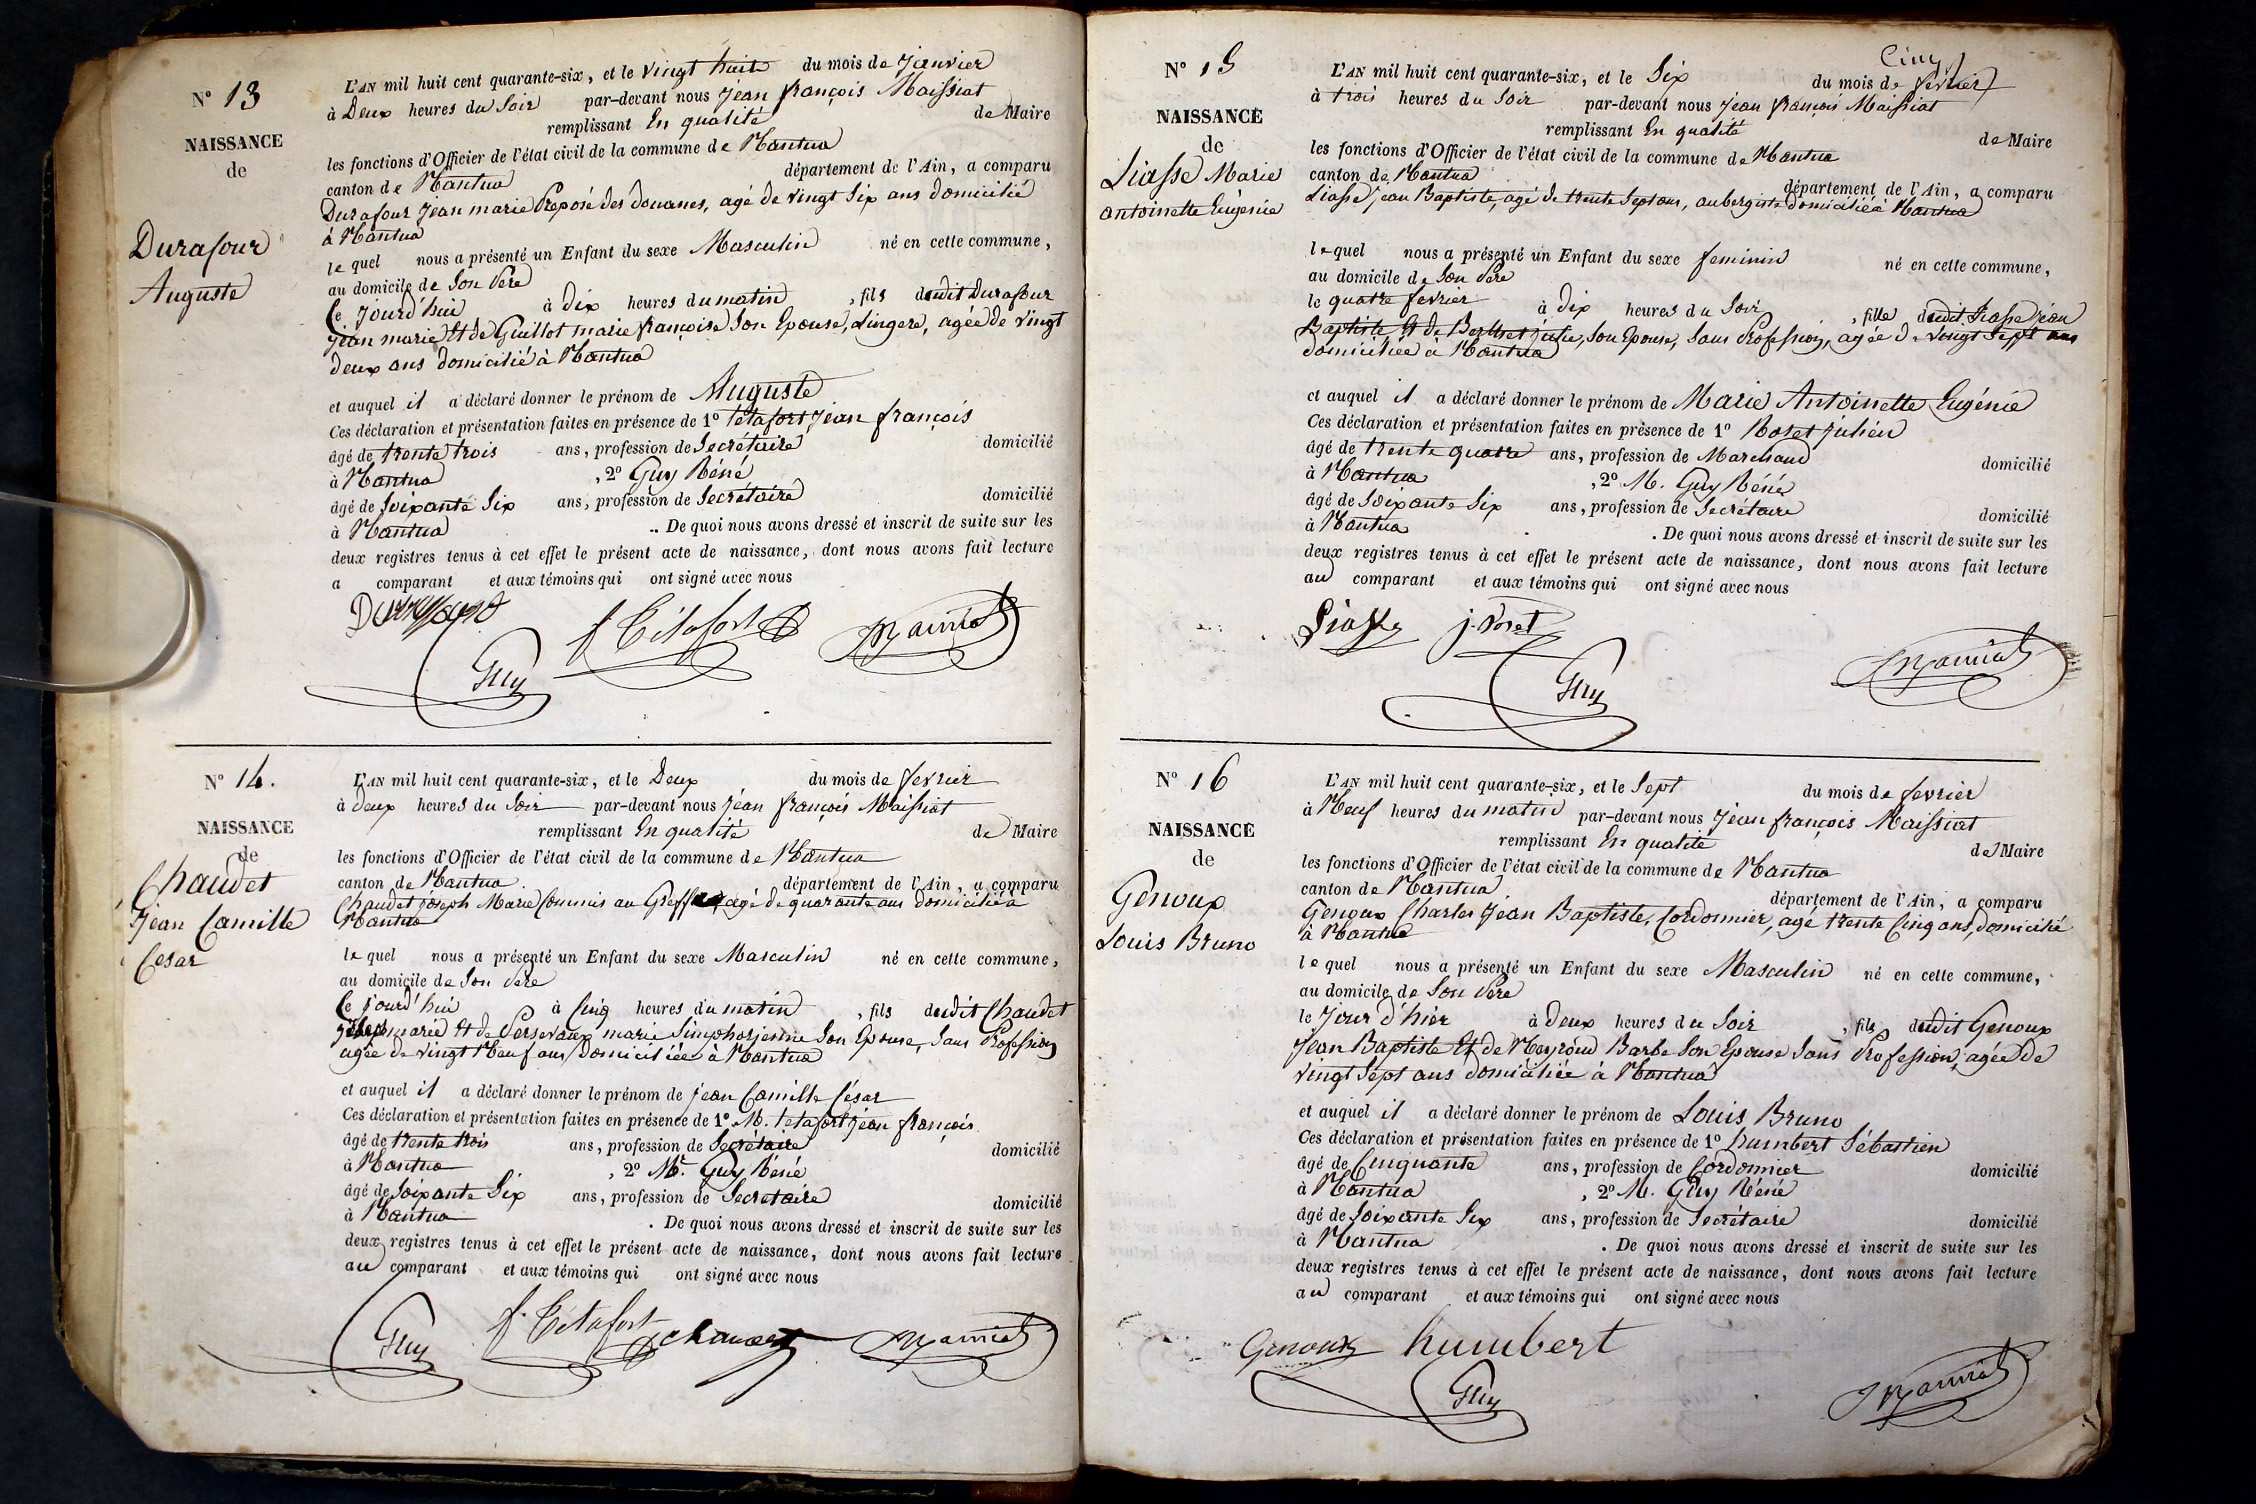 N° 13
NAISSANCE
de
Durafour
Auguste
L'AN mil huit cent quarante-six, et le vingt huit du mois de Janvier
à Deux heures du Soir par-devant nous Jean françois Maissiat
remplissant En qualité de Maire
les fonctions d'Officier de l'état civil de la commune de Nantua
canton de Nantua département de l'Ain, a comparu
Durafour Jean marie Preposé des douanes, agé de vingt Six ans domicilié
à Nantua
lequel nous a présenté un Enfant du sexe Masculin né en cette commune,
au domicile de Son Père
Ce jourd'hui à Dix heures du matin, fils dudit Durafour
Jean marie Et de Guillot marie françoise Son Epouse, Lingere, agée de vingt
deux ans domicilié à Nantua
et auquel il a déclaré donner le prénom de Auguste
Ces déclaration et présentation faites en présence de 1° Tetafort Jean françois
âgé de trente trois ans, profession de Secrétaire domicilié
à Nantua, 2° Guy Réné
âgé de Soixante Six ans, profession de Secrétaire domicilié
à Nantua .. De quoi nous avons dressé et inscrit de suite sur les
deux registres tenus à cet effet le présent acte de naissance, dont nous avons fait lecture
a comparant et aux témoins qui ont signé avec nous
Durafour f Tétafort Maissiat
Guy
N° 14.
NAISSANCE
de
Chaudet
Jean Camille
Cesar
L'AN mil huit cent quarante-six, et le Deux du mois de fevrier
à deux heures du Soir par-devant nous Jean françois Maissiat
remplissant En qualité de Maire
les fonctions d'Officier de l'état civil de la commune de Nantua
canton de Nantua département de l'Ain, a comparu
Chaudet Joseph Marie Commis au Greffe agé de quarante ans domicilié à
Nantua
lequel nous a présenté un Enfant du sexe Masculin né en cette commune,
au domicile de Son Père
Ce jourd'hui à Cinq heures du matin, fils dudit Chaudet
marie Et de marie Simphorienne Son Epouse, Sans Profession
agée de vingt Neuf ans domiciliée à Nantua
et auquel il a déclaré donner le prénom de jean Camille César
Ces déclaration et présentation faites en présence de 1° M. Tetafort jean françois
âgé de trente trois ans, profession de Secrétaire domicilié
à Nantua, 2° Mr. Guy Réné
âgé de Soixante Six ans, profession de Secretaire domicilié
à Nantua . De quoi nous avons dressé et inscrit de suite sur les
deux registres tenus à cet effet le présent acte de naissance, dont nous avons fait lecture
au comparant et aux témoins qui ont signé avec nous
Guy f. Tétafort Chaudet Maissiat
N° 15
NAISSANCE
de
Liasse Marie
antoinette Eugénie
Cinq
L'AN mil huit cent quarante-six, et le Six du mois de fevrier
à trois heures du Soir par-devant nous Jean françois Maissiat
remplissant En qualité de Maire
les fonctions d'Officier de l'état civil de la commune de Nantua
canton de Nantua département de l'Ain, a comparu
Liasse jean Baptiste, agé de trente Sept ans, aubergiste domicilié à Nantua
lequel nous a présenté un Enfant du sexe feminin né en cette commune,
au domicile de Son Père
le quatre fevrier à Dix heures du Soir, fille dudit Liasse jean
Baptiste Et de Berthet julie, Son Epouse, Sans Profession, agée de vingt Sept ans
domiciliée à Nantua
et auquel il a déclaré donner le prénom de Marie Antoinette Eugénie
Ces déclaration et présentation faites en présence de 1° Noret Julien
âgé de trente quatre ans, profession de Marchand domicilié
à Nantua, 2° M. Guy Réné
âgé de Soixante Six ans, profession de Secrétaire domicilié
à Nantua . De quoi nous avons dressé et inscrit de suite sur les
deux registres tenus à cet effet le présent acte de naissance, dont nous avons fait lecture
au comparant et aux témoins qui ont signé avec nous
Liasse j. Noret
Guy Maissiat
N° 16
NAISSANCE
de
Genoux
Louis Bruno
L'AN mil huit cent quarante-six, et le Sept du mois de fevrier
à Neuf heures du matin par-devant nous Jean françois Maissiat
remplissant En qualité de Maire
les fonctions d'Officier de l'état civil de la commune de Nantua
canton de Nantua département de l'Ain, a comparu
Genoux Charles Jean Baptiste, Cordonnier, agé trente Cinq ans, domicilié
à Nantua
lequel nous a présenté un Enfant du sexe Masculin né en cette commune,
au domicile de Son Père
le Jour d'hier à deux heures du Soir, fils dudit Genoux
Jean Baptiste Et de Neyroud Barbe Son Epouse Sans Profession, agée de
vingt Sept ans domiciliée à Nantua
et auquel il a déclaré donner le prénom de Louis Bruno
Ces déclaration et présentation faites en présence de 1° humbert Sébastien
âgé de Cinquante ans, profession de Cordonnier domicilié
à Nantua, 2° M. Guy Réné
âgé de Soixante Six ans, profession de Secrétaire domicilié
à Nantua . De quoi nous avons dressé et inscrit de suite sur les
deux registres tenus à cet effet le présent acte de naissance, dont nous avons fait lecture
au comparant et aux témoins qui ont signé avec nous
Genoux humbert
Guy Maissiat